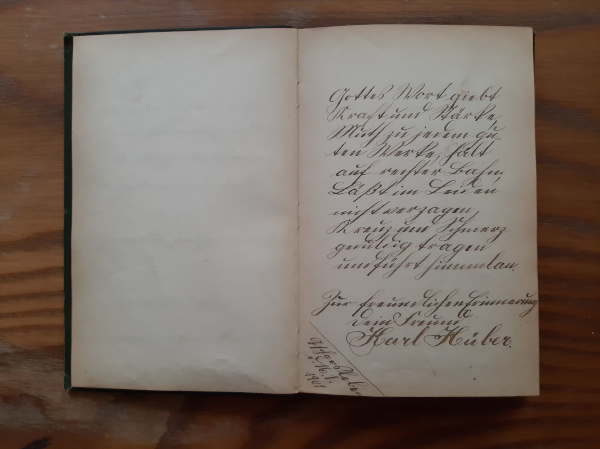 Gottes Wort giebt
Kraft und Stärke
Muth zu jedem gu-
ten Werke, hält
auf rechter Bahn,
Läßt im Leiden
nicht verzagen,
Kreuz und Schmerz
geduldig tragen
und führt himmelan.
Zur freundlichen Erinnerung
dein Freund
Karl Huber.
1901